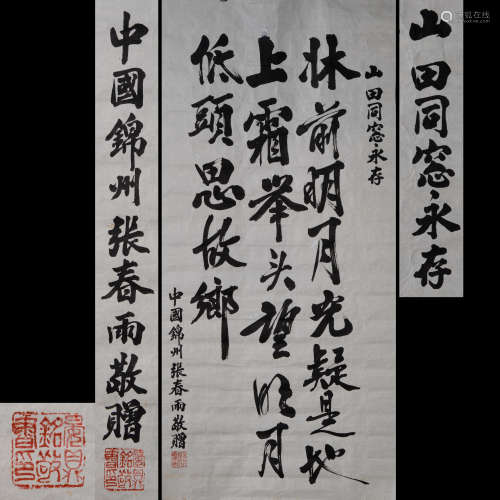 山田同窓永存
山田同窓永存
牀前明月光疑是地
上霜举头望明月
低頭思故鄉
中國錦州張春雨敬贈
中國錦州張春雨敬贈